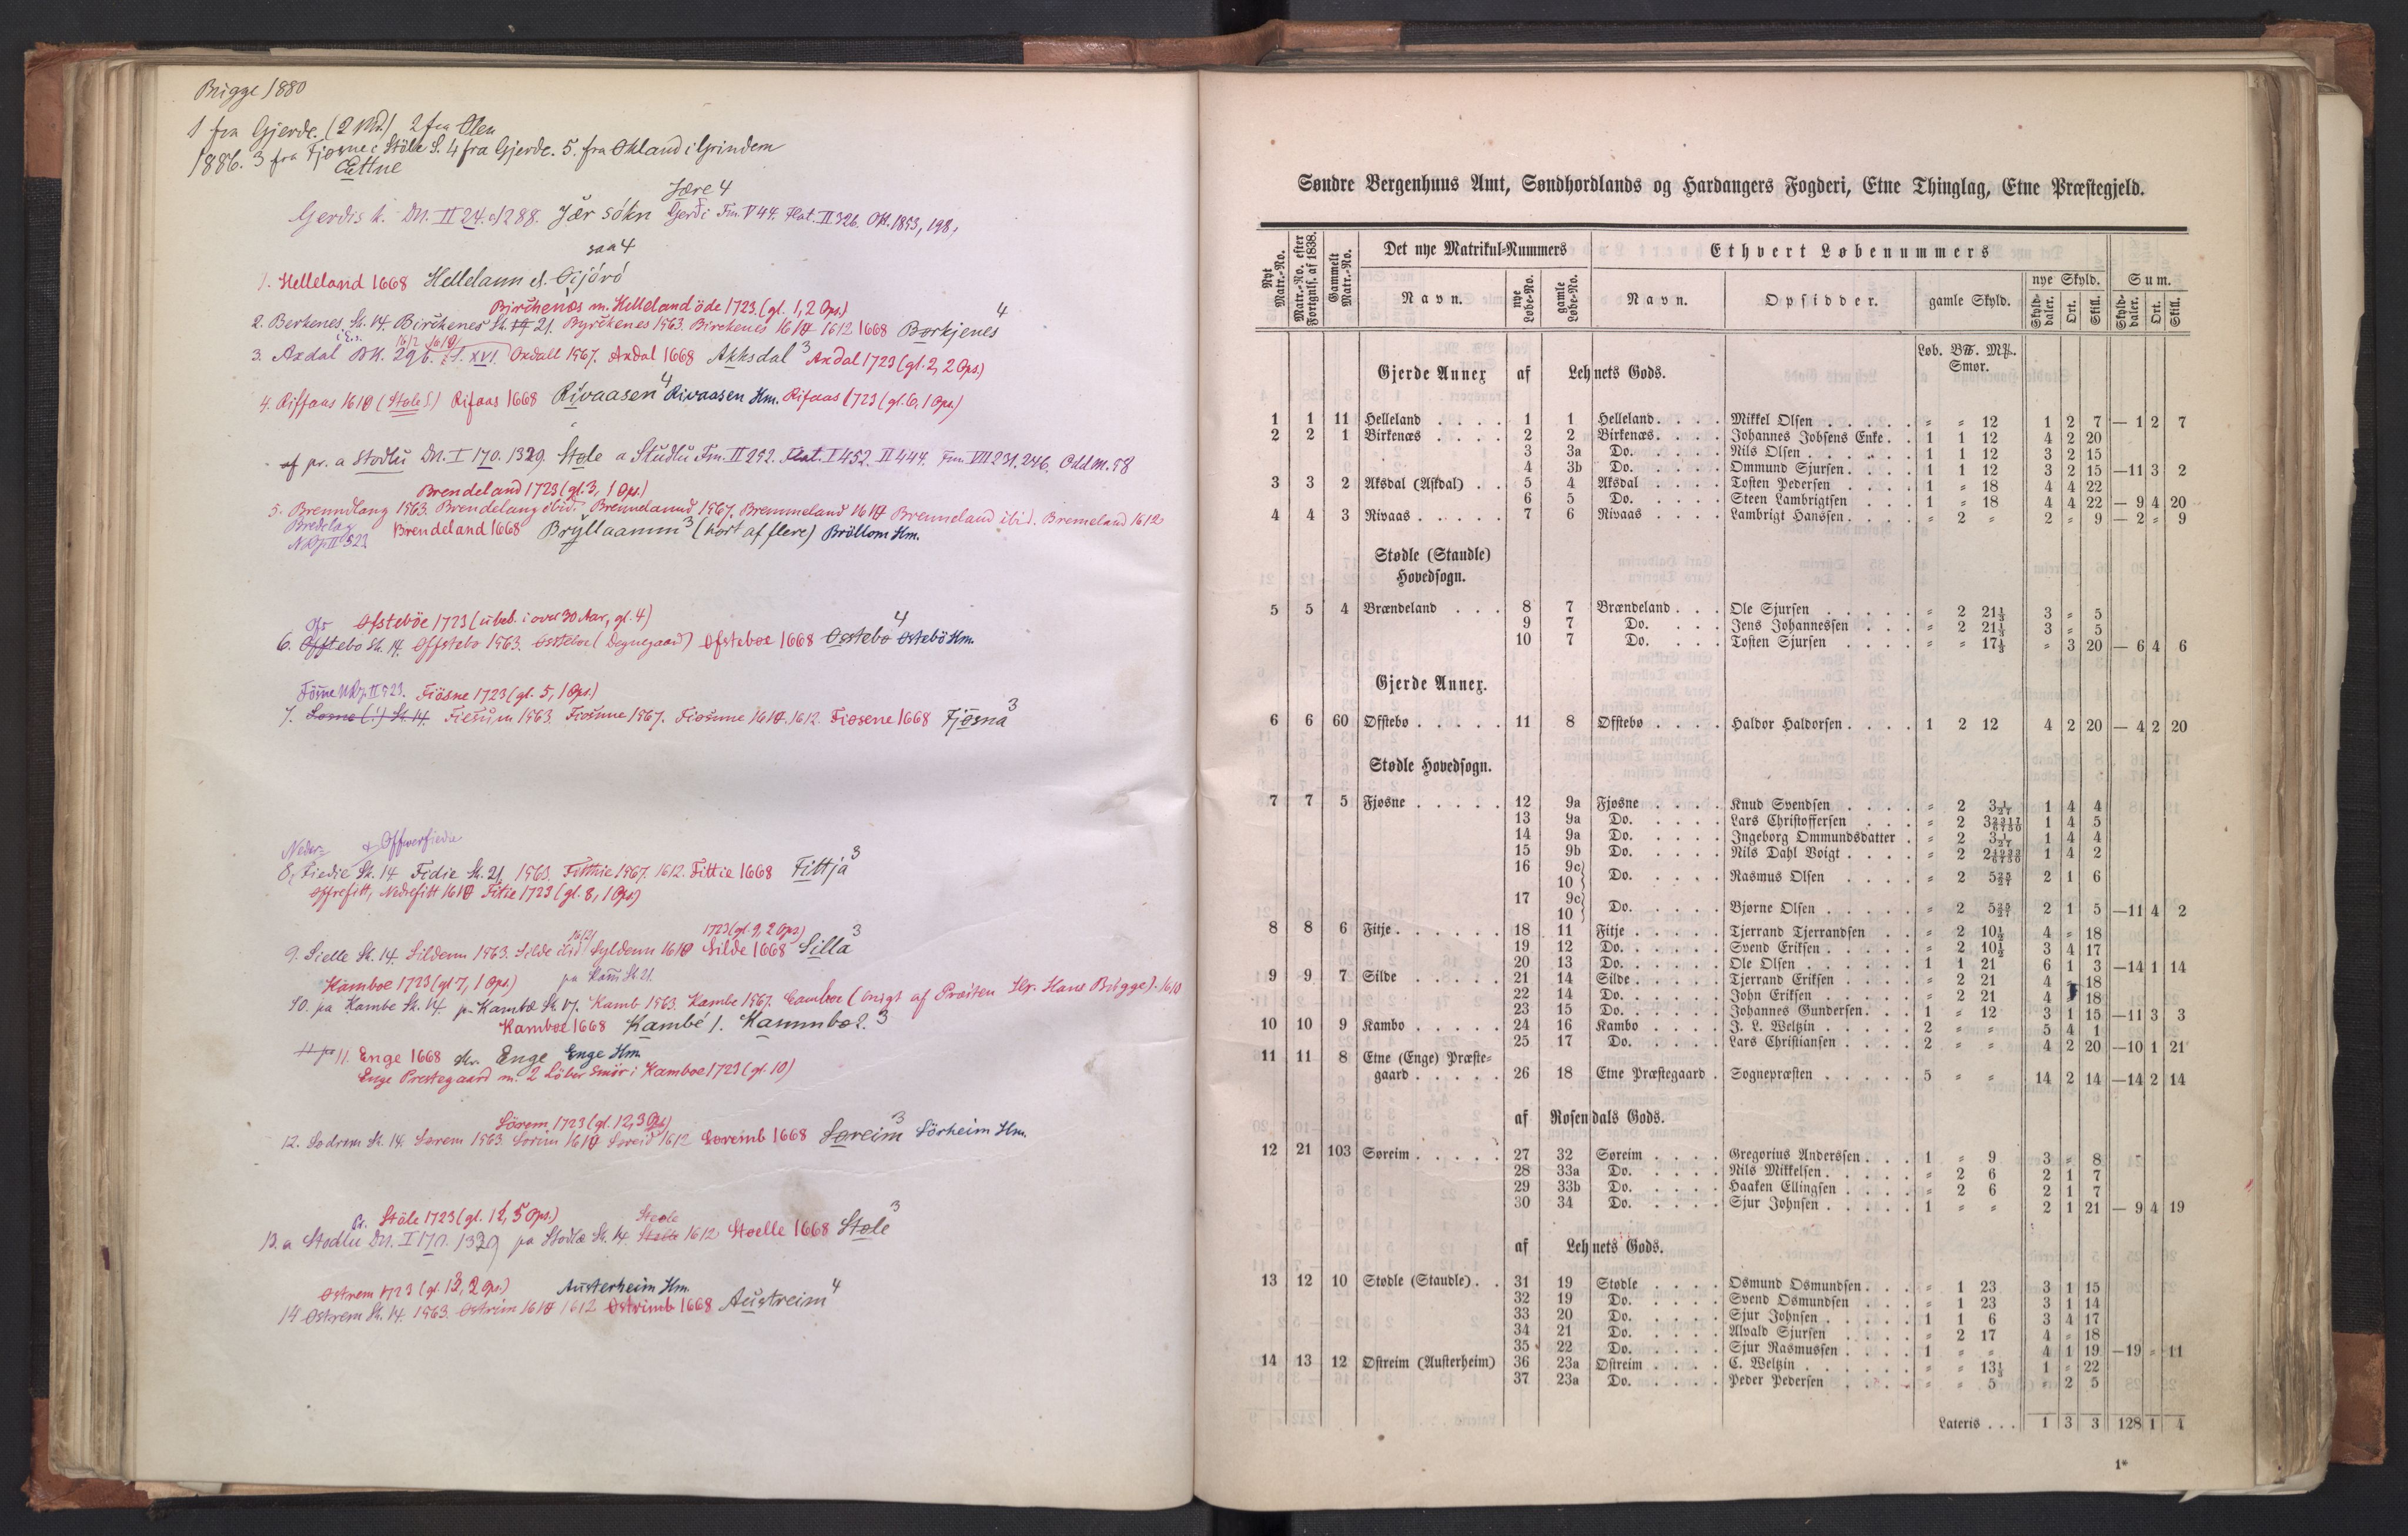 Brigge 1880
1 fra Gjerde. (2 Md.) 2 fra Ølen
1886. 3 fra Fjøsne i Støle S. 4 fra Gjerde. 5. fra Økland i Grindem
Ættne
Jære 4
Gerdis k. DN. II 24. 1288. Jær sókn Gerði Fm. V 44. Flat. II 326. OH. 1853, 198.
saa 4
1. Helleland 1668 Hellelann el.
Birchenæs m. Helleland öde 1723 (gl. 1, 2 Ops.)
2. Berkenes Sk. 14. Birckenes Sk. 21. Byrckenes 1563. Birckenes 1610 1612 1668 Børkjenes 4
3. Axdal BK. 29b. Oxdall 1567. Axdal 1668 Akksdal 3 Axdal 1723 (gl. 2, 2 Ops.)
4. Riffaas 1610 (Støle S.) Rifaas 1668 Rivaasen 4 Rivaasen Hm. Rifaas 1723 (gl. 6, 1 Ops.)
af pr. a Stodlu DN. I 170. 1329. Støle a Studlu Fm. II 252. Flat. I 452. II 444. Fm. VII 231. 246. Odd M. 58
Brendeland 1723 (gl. 3, 1 Ops.)
5. Brenndlang 1563. Brendelang ibid. Brenndanud 1567. Bremmeland 1610 Brenneland ibid. Bremeland 1612
Bredelag
NRJ. II 523 Brendeland 1668 Bryllaamm 3 (hørt af flere) Bröllom Hm.
Ofstebøe 1723 (ubeb. i over 30 Aar, gl. 4)
6. Offstebo Sk. 14. Offstebo 1563. Ostteboe (Degnegaard) Ofsteboe 1668 Østebø 4 Østebö Hm.
NRJ. II 523. Fiösne 1723 (gl. 5, 1 Ops.)
7. Some (!) Sk. 14. Fiesum 1563. Fiosnne 1567. Fiosnne 1610. 1612. Fiosene 1668 Fjøsna 3
Neder- & Offwerfiedie
8. Fiedie Sk. 14 Fidie Sk. 21. 1563. Fitthie 1567. 1612. Fittie 1668 Fittja 3
Offrefitt, Nedrefitt 1610 Fitie 1723 (gl. 8, 1 Ops.)
1723 (gl. 9, 2 Ops.)
9. Sielle Sk. 14. Sildenn 1563. Silde ibid. 1612 Syldenn 1610 Silde 1668 Silla 3
Kamboe 1723 (gl. 7, 1 Ops.) pa Kam Sk. 21.
10. pa Kambe Sk. 14. p. Kambæ Sk. 17. Kamb 1563. Kambe 1567. Camboe (brugt af Præsten Hr. Hans Brygge). 1610
Kamboe 1668 Kambé 1. Kammbo 2. 3
11. Enge 1668 Enge Enge Hm.
Enge Prestegaard m. 2 Löber Smör i Kamboe 1723 (gl. 10)
Sörem 1723 (gl. 12, 3 Ops.)
12. Sodrem Sk. 14. Sørem 1563. Sorim 1610 Soreid 1612 Soreimb 1668 Søreim 3 Sörheim Hm.
Pr. Støle 1723 (gl. 11, 5 Ops.) Støele
13. a Stodlu DN. I 170. 1329 pa Stodlæ Sk. 14. Stelle 1612 Stoelle 1668 Støle 3
Østrem 1723 (gl. 13, 2 Ops.) Austerheim Hm.
14 Østrem Sk. 14. 1563. Østrim 1610 1612 Østrimb 1668 Austreim 4
Søndre Bergenhuus Amt, Søndhordlands og Hardangers Fogderi, Etne Thinglag, Etne Præstegjeld.
Nyt Matr.-No. Matr.-No. efter Fortgnls. af 1838. Gammelt Matr.-No. Det nye Matrikul-Nummers Ethvert Løbenummers
Navn. nye Løbe-No. gamle Løbe-No. Navn. Opsidder. gamle Skyld. nye Skyld. Sum.
Skylddaler. Ort. Skill. Skylddaler. Ort. Skill.
Løb. B℔. M℔. Smør.
Gjerde Annex af Lehnets Gods.
1 1 11 Helleland 1 1 Helleland Mikkel Olsen " " 12 1 2 7 — 1 2 7
2 2 1 Birkenæs 2 2 Birkenæs Johannes Jobsens Enke 1 1 12 4 2 20
3 3a Do. Nils Olsen 1 1 12 3 2 15
4 3b Do. Ommund Sjursen 1 1 12 3 2 15 — 11 3 2
3 3 2 Aksdal (Askdal) 5 4 Aksdal Tosten Pedersen 1 " 18 4 4 22
6 5 Do. Steen Lambrigtsen 1 " 18 4 4 22 — 9 4 20
4 4 3 Rivaas 7 6 Rivaas Lambrigt Hanssen " 2 " 2 " 9 — 2 " 9
Stødle (Staudle)
Hovedsogn.
5 5 4 Brændeland 8 7 Brændeland Ole Sjursen " 2 21⅓ 3 " 5
9 7 Do. Jens Johannessen " 2 21⅓ 3 " 5
10 7 Do. Tosten Sjursen " " 17⅓ " 3 20 — 6 4 6
Gjerde Annex.
6 6 60 Øfstebø 11 8 Øfstebø Haldor Haldorsen 1 2 12 4 2 20 — 4 2 20
Stødle Hovedsogn.
7 7 5 Fjøsne 12 9a Fjøsne Knud Svendsen " 2 3 1/27 1 4 4
13 9a Do. Lars Christoffersen " 2 1 4 5
14 9a Do. Ingeborg Ommundsdatter " 2 3 1/27 1 4 4
15 9b Do. Nils Dahl Voigt " 2 1 4 2
16 9c 10 Do. Rasmus Olsen " 2 5 25/27 2 1 6
17 9c 10 Do. Bjørne Olsen " 2 5 25/27 2 1 5 — 11 4 2
8 8 6 Fitje 18 11 Fitje Tjerrand Tjerrandsen " 2 10½ 4 " 18
19 12 Do. Svend Eriksen " 2 10½ 3 4 17
20 13 Do. Ole Olsen 1 1 21 6 1 3 — 14 1 14
9 9 7 Silde 21 14 Silde Tjerrand Eriksen " 2 21 4 " 18
22 14 Do. John Eriksen " 2 21 4 " 18
23 15 Do. Johannes Gundersen 1 " 12 3 1 15 — 11 3 3
10 10 9 Kambo 24 16 Kambo J. L. Weltzin 2 " " 5 4 1
25 17 Do. Lars Christiansen 2 " " 4 2 20 — 10 1 21
11 11 8 Etne (Enge) Præste-
gaard 26 18 Etne Præstegaard Sognepræsten 5 " " 14 2 14 — 14 2 14
af Rosendals Gods.
12 21 103 Søreim 27 32 Søreim Gregorius Anderssen 1 " 9 3 " 8
28 33a Do. Nils Mikkelsen " 2 6 2 1 7
29 33b Do. Haaken Ellingsen " 2 6 2 1 7
30 34 Do. Sjur Johnsen 1 " " 2 1 21 — 9 4 19
af Lehnets Gods.
13 12 10 Stødle (Staudle) 31 19 Stødle Osmund Osmundsen " 1 23 3 1 15
32 19 Do. Svend Osmundsen " 1 23 3 1 14
33 20 Do. Sjur Johnsen 1 1 6 3 4 17
34 21 Do. Alvald Sjursen " 2 17 4 " 18
35 22 Do. Sjur Rasmussen 1 " " 4 1 19 — 19 " 11
14 13 12 Østreim (Austerheim) 36 23a Østreim C. Weltzin " " 13⅓ 1 " 22
37 23a Do. Peder Pedersen " " 5 " 2 5
Lateris . . . 1 3 3 128 1 4
1*